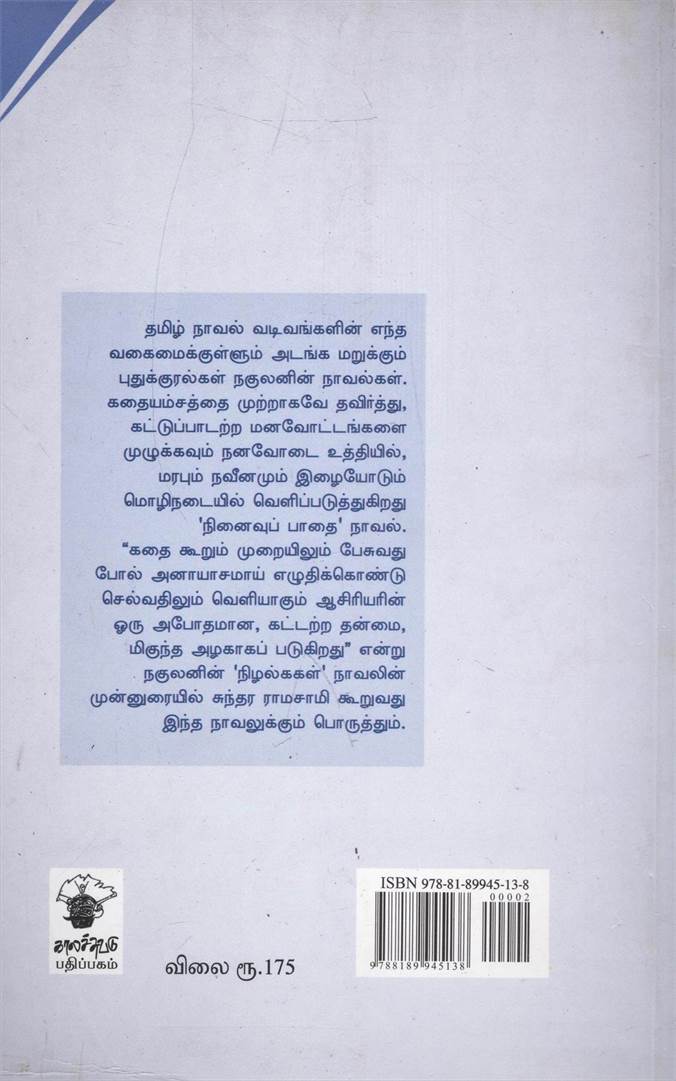 தமிழ் நாவல் வடிவங்களின் எந்த
வகைமைக்குள்ளும் அடங்க மறுக்கும்
புதுக்குரல்கள் நகுலனின் நாவல்கள்.
கதையம்சத்தை முற்றாகவே தவிர்த்து,
கட்டுப்பாடற்ற மனவோட்டங்களை
முழுக்கவும் நனவோடை உத்தியில்,
மரபும் நவீனமும் இழையோடும்
மொழிநடையில் வெளிப்படுத்துகிறது
'நினைவுப் பாதை' நாவல்.
“கதை கூறும் முறையிலும் பேசுவது
போல் அனாயாசமாய் எழுதிக்கொண்டு
செல்வதிலும் வெளியாகும் ஆசிரியரின்
ஒரு அபோதமான, கட்டற்ற தன்மை,
மிகுந்த அழகாகப் படுகிறது” என்று
நகுலனின் 'நிழல்ககள்' நாவலின்
முன்னுரையில் சுந்தர ராமசாமி கூறுவது
இந்த நாவலுக்கும் பொருத்தும்.
காலச்சுவடு
பதிப்பகம்
விலை ரூ.175
ISBN 978-81-89945-13-8
00002
9 788189 945138